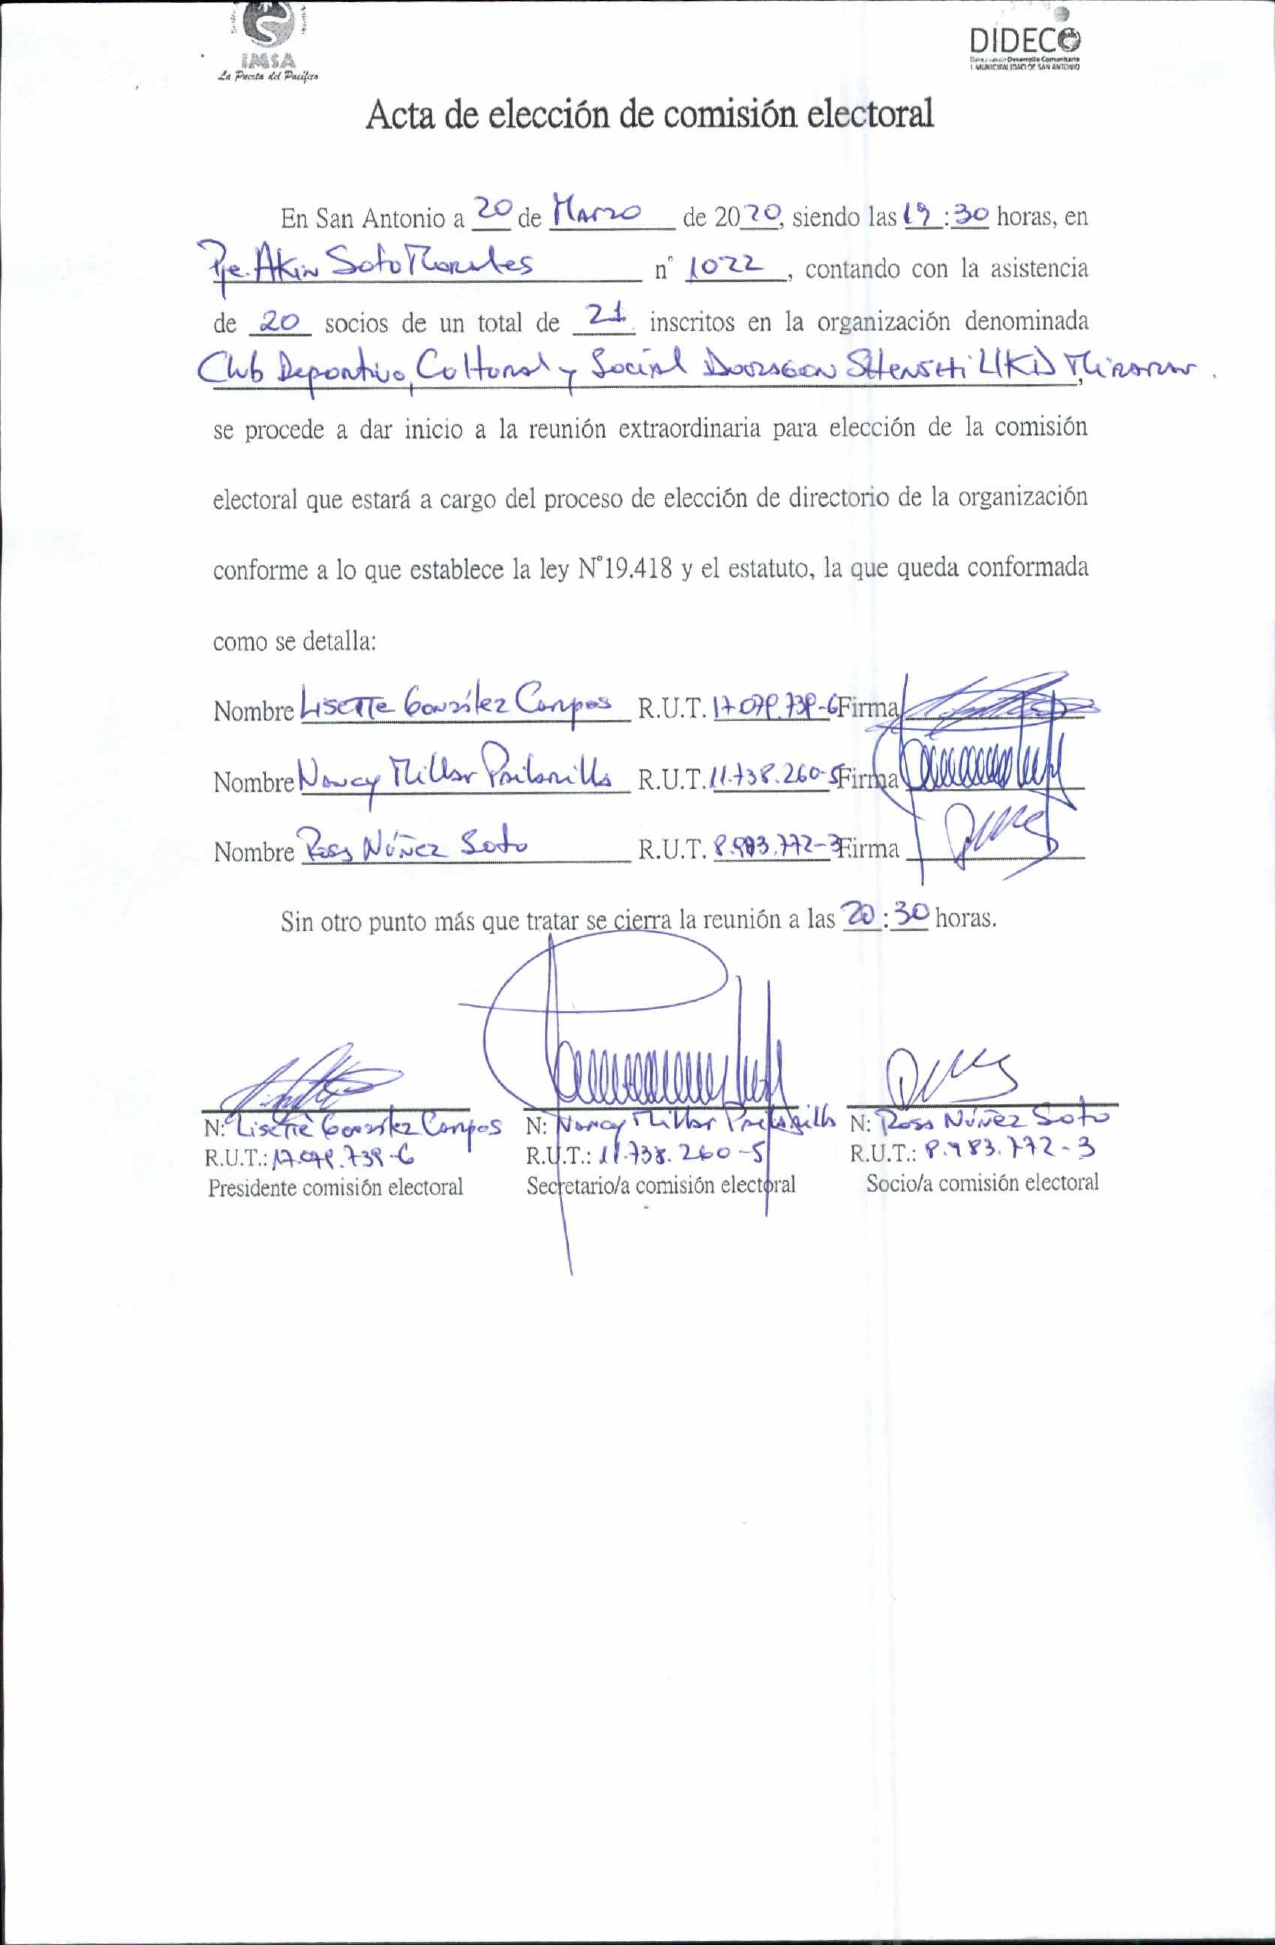 IMSA
La Puerta del Pacífico
DIDECO
Desarrollo Comunitario
I. MUNICIPALIDAD DE SAN ANTONIO
Acta de elección de comisión electoral
En San Antonio a 20 de Marzo de 2020, siendo las 19:30 horas, en
Pje. Akin Soto Morales n° 1022, contando con la asistencia
de 20 socios de un total de 21 inscritos en la organización denominada
Club Deportivo, Cultural y Social Doorageon Shenshi UKD Miramar.
se procede a dar inicio a la reunión extraordinaria para elección de la comisión
electoral que estará a cargo del proceso de elección de directorio de la organización
conforme a lo que establece la ley N°19.418 y el estatuto, la que queda conformada
como se detalla:
Nombre Lisette González Campos R.U.T. 17.079.739-6 Firma
Nombre Nancy Millar R.U.T. 11.738.260-5 Firma
Nombre Rosa Núñez Soto R.U.T. 8.983.772-3 Firma
Sin otro punto más que tratar se cierra la reunión a las 20:30 horas.
N: Lisette González Campos N: Nancy Millar N: Rosa Núñez Soto
R.U.T.: 17.079.739-6 R.U.T.: 11.738.260-5 R.U.T.: 8.983.772-3
Presidente comisión electoral Secretario/a comisión electoral Socio/a comisión electoral